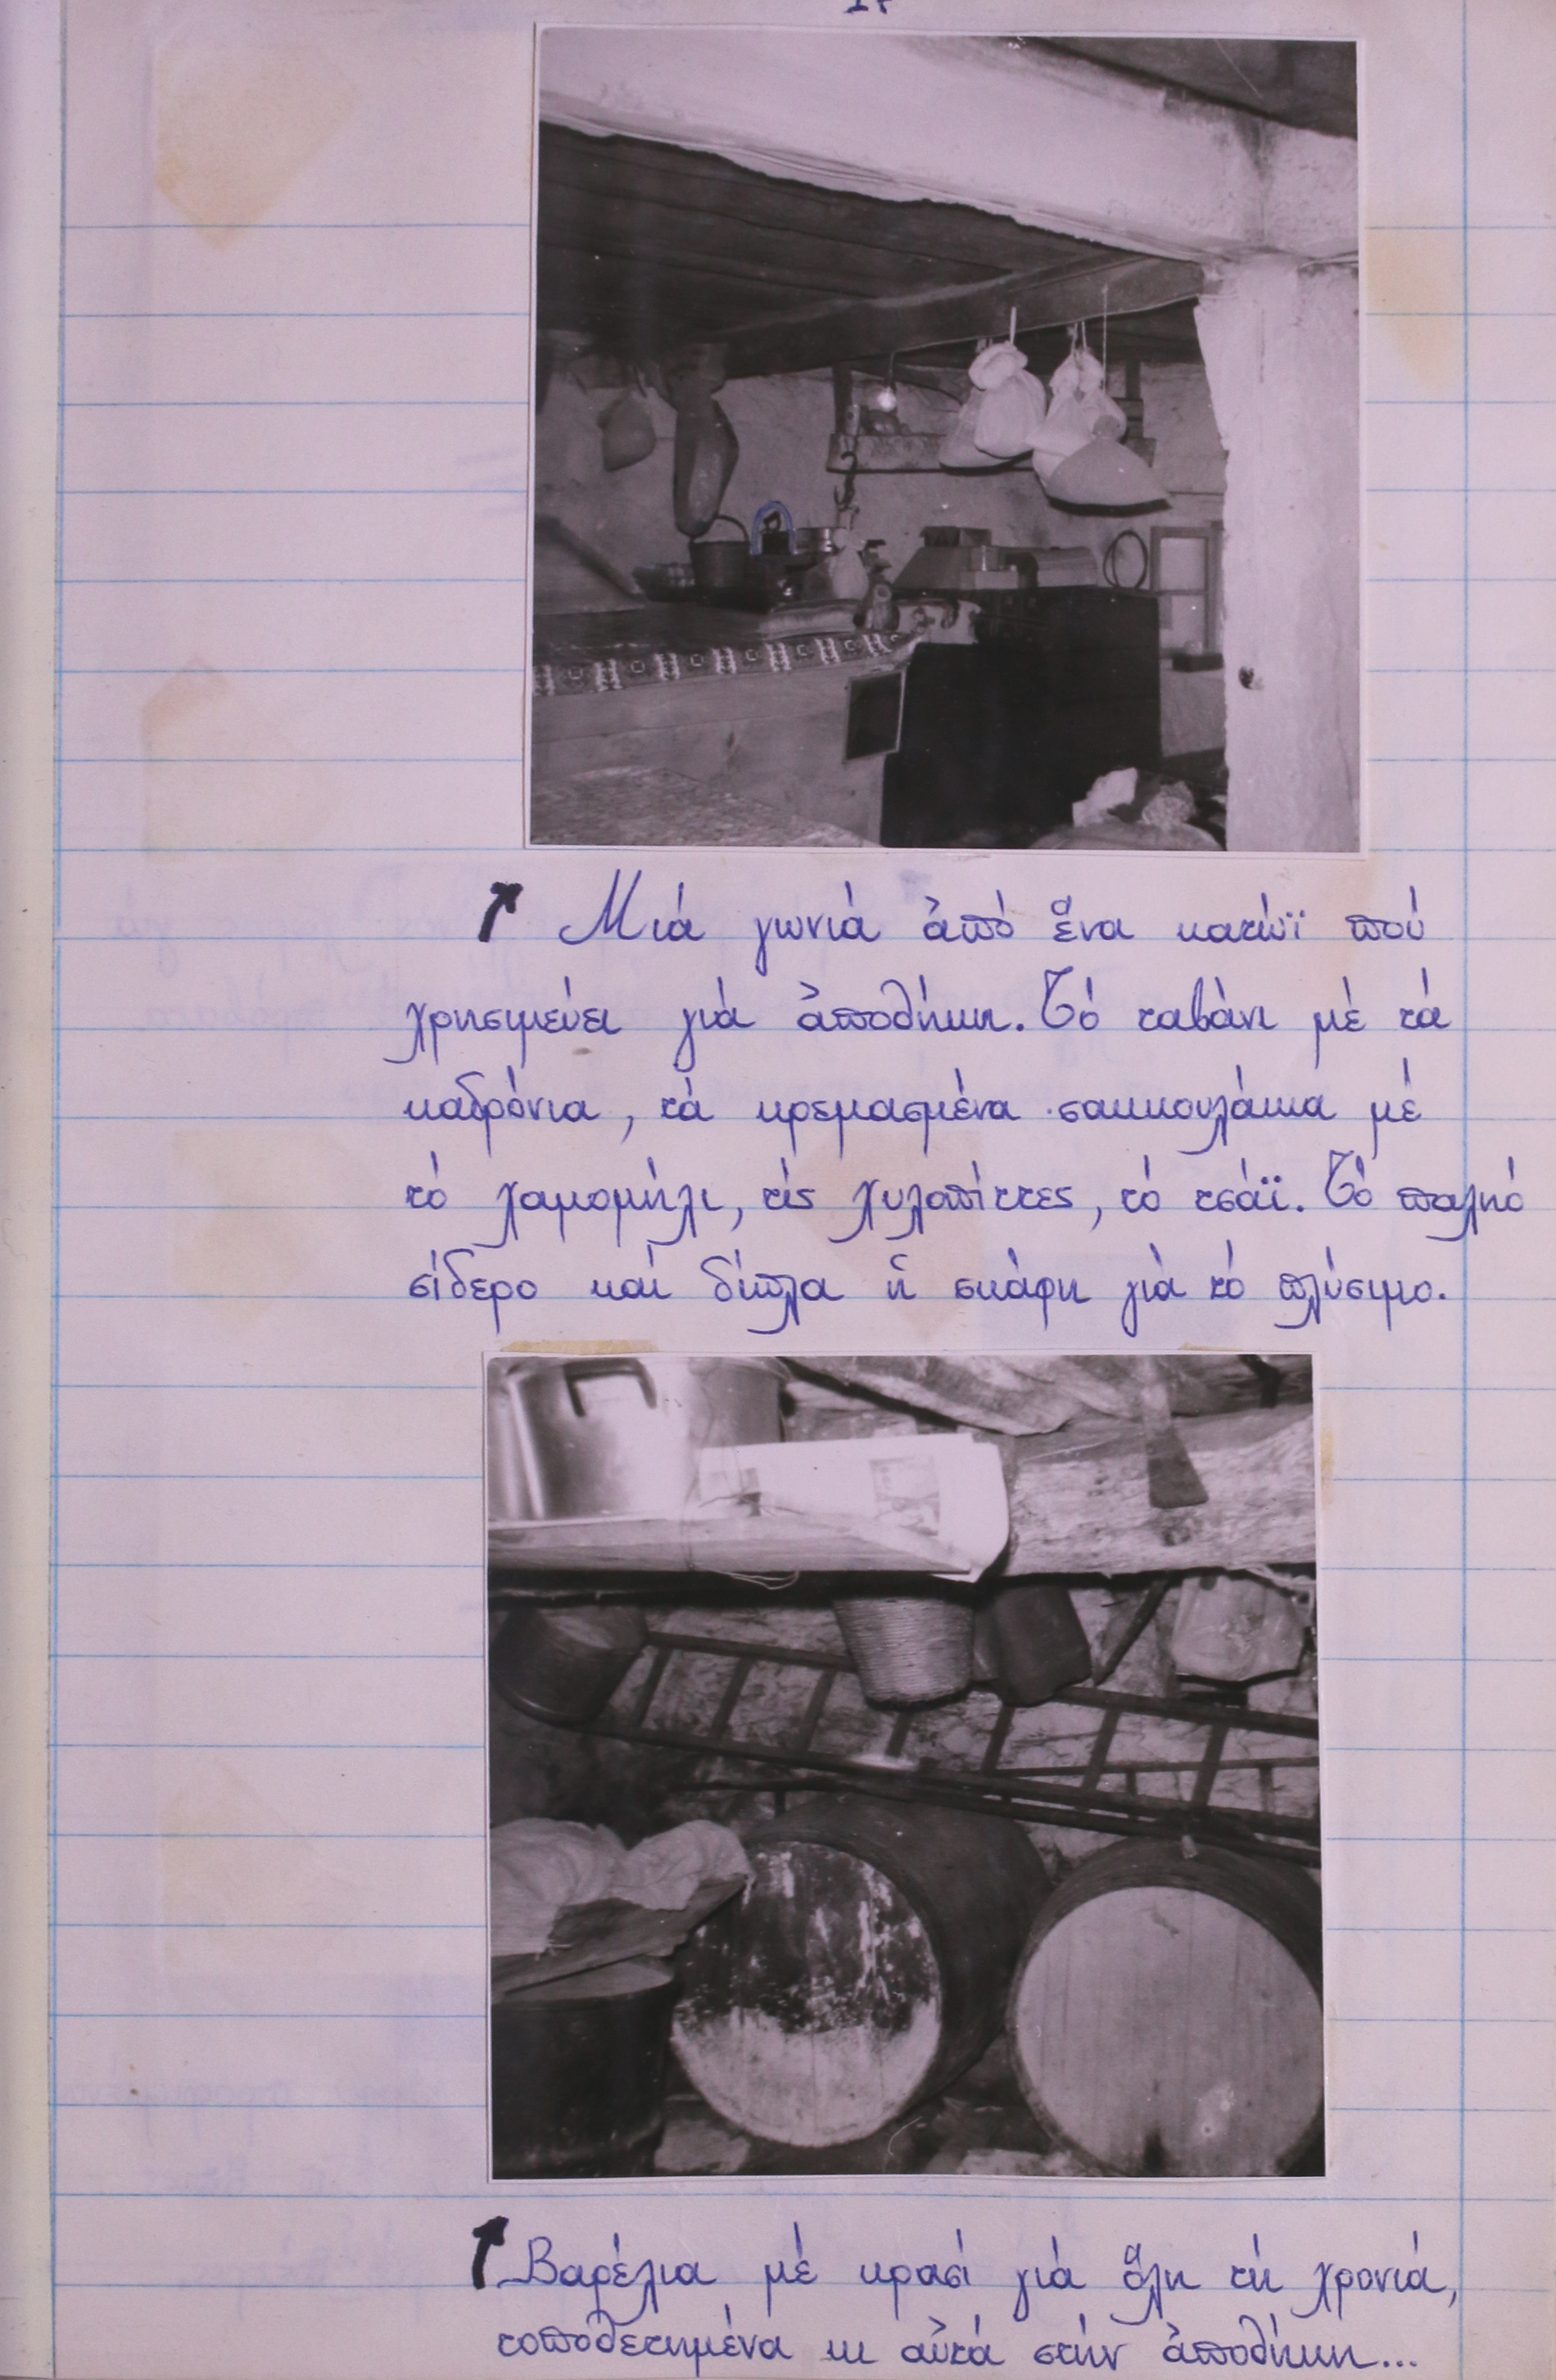 Μιά γωνιά ἀπό ἕνα κατώϊ πού
χρησιμεύει γιά ἀποθήκη. Τό ταβάνι μέ τά
καδρόνια, τά κρεμασμένα σακκουλάκια μέ
τό χαμομήλι, τίς χυλοπίττες, τό τσάϊ. Τό παληό
σίδερο καί δίπλα ἡ σκάφη γιά τό πλύσιμο.
Βαρέλια μέ κρασί γιά ὅλη τή χρονιά,
τοποθετημένα κι αὐτά στήν ἀποθήκη...